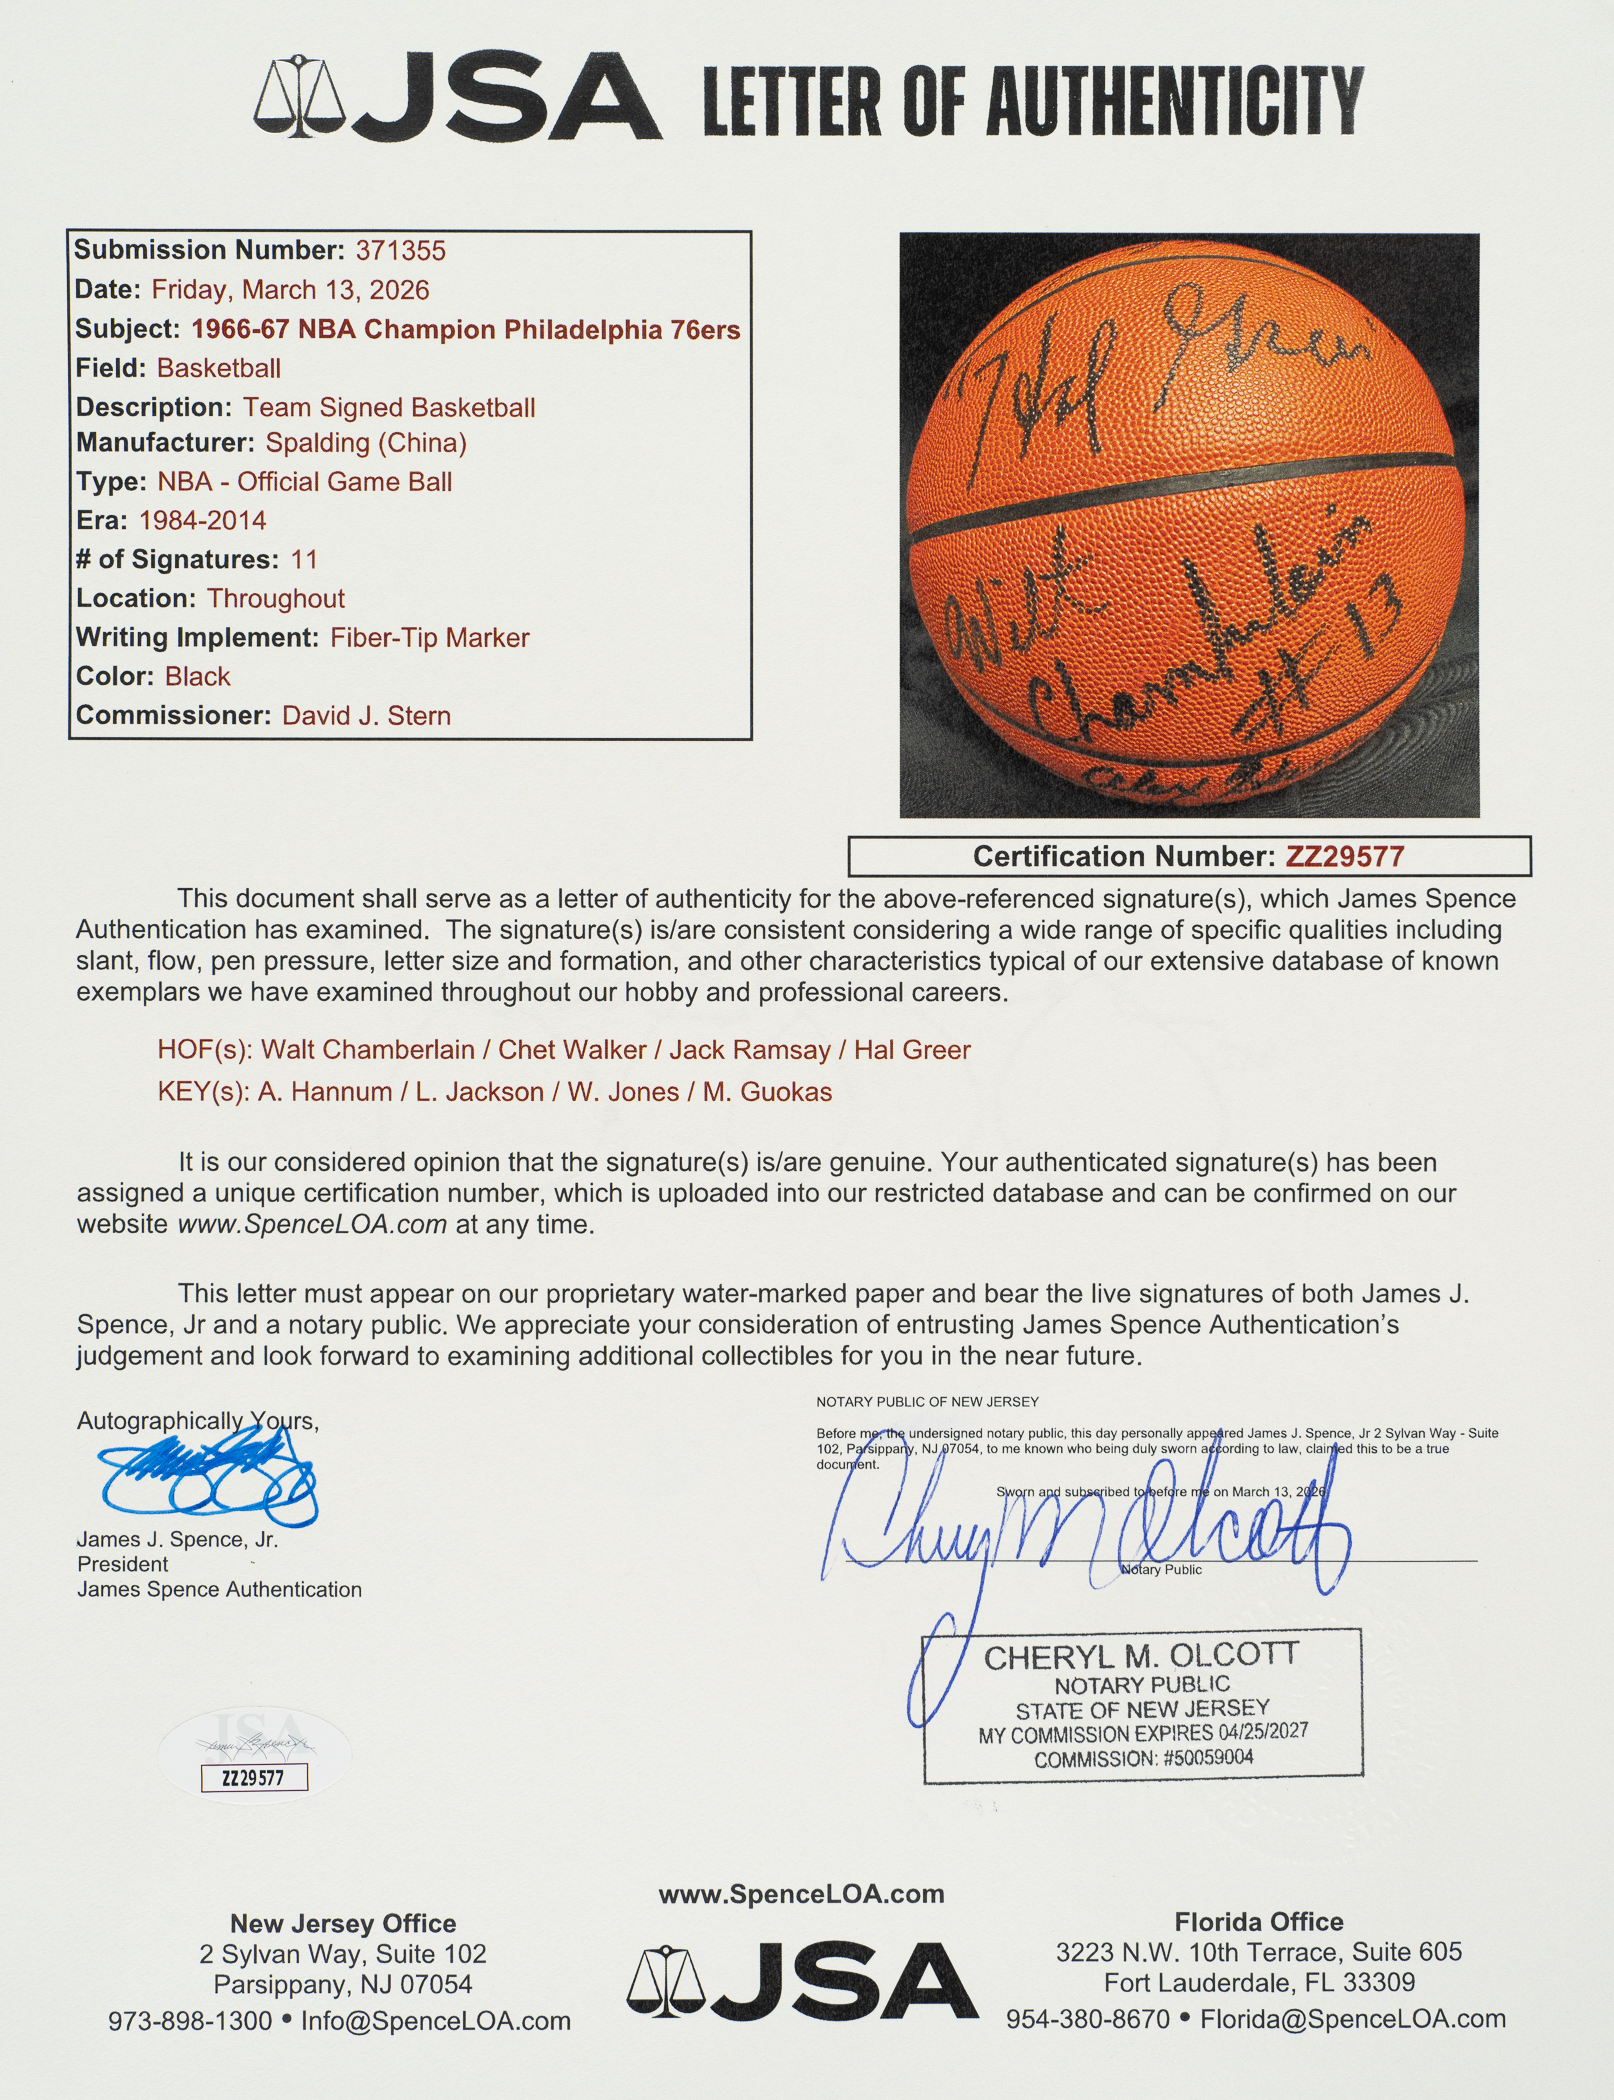 JSA LETTER OF AUTHENTICITY
Submission Number: 371355
Date: Friday, March 13, 2026
Subject: 1966-67 NBA Champion Philadelphia 76ers
Field: Basketball
Description: Team Signed Basketball
Manufacturer: Spalding (China)
Type: NBA - Official Game Ball
Era: 1984-2014
# of Signatures: 11
Location: Throughout
Writing Implement: Fiber-Tip Marker
Color: Black
Commissioner: David J. Stern
Hal Greer
Wilt
Chamberlain
#13
Alex
Certification Number: ZZ29577
This document shall serve as a letter of authenticity for the above-referenced signature(s), which James Spence
Authentication has examined. The signature(s) is/are consistent considering a wide range of specific qualities including
slant, flow, pen pressure, letter size and formation, and other characteristics typical of our extensive database of known
exemplars we have examined throughout our hobby and professional careers.
HOF(s): Walt Chamberlain / Chet Walker / Jack Ramsay / Hal Greer
KEY(s): A. Hannum / L. Jackson / W. Jones / M. Guokas
It is our considered opinion that the signature(s) is/are genuine. Your authenticated signature(s) has been
assigned a unique certification number, which is uploaded into our restricted database and can be confirmed on our
website www.SpenceLOA.com at any time.
This letter must appear on our proprietary water-marked paper and bear the live signatures of both James J.
Spence, Jr and a notary public. We appreciate your consideration of entrusting James Spence Authentication's
judgement and look forward to examining additional collectibles for you in the near future.
Autographically Yours,
James J. Spence, Jr.
President
James Spence Authentication
NOTARY PUBLIC OF NEW JERSEY
Before me, the undersigned notary public, this day personally appeared James J. Spence, Jr 2 Sylvan Way - Suite
102, Parsippany, NJ 07054, to me known who being duly sworn according to law, claimed this to be a true
document.
Sworn and subscribed to before me on March 13, 2026
Cheryl M Olcott
Notary Public
CHERYL M. OLCOTT
NOTARY PUBLIC
STATE OF NEW JERSEY
MY COMMISSION EXPIRES 04/25/2027
COMMISSION: #50059004
JSA
James J. Spence Jr.
ZZ29577
www.SpenceLOA.com
New Jersey Office
2 Sylvan Way, Suite 102
Parsippany, NJ 07054
973-898-1300 • Info@SpenceLOA.com
JSA
Florida Office
3223 N.W. 10th Terrace, Suite 605
Fort Lauderdale, FL 33309
954-380-8670 • Florida@SpenceLOA.com